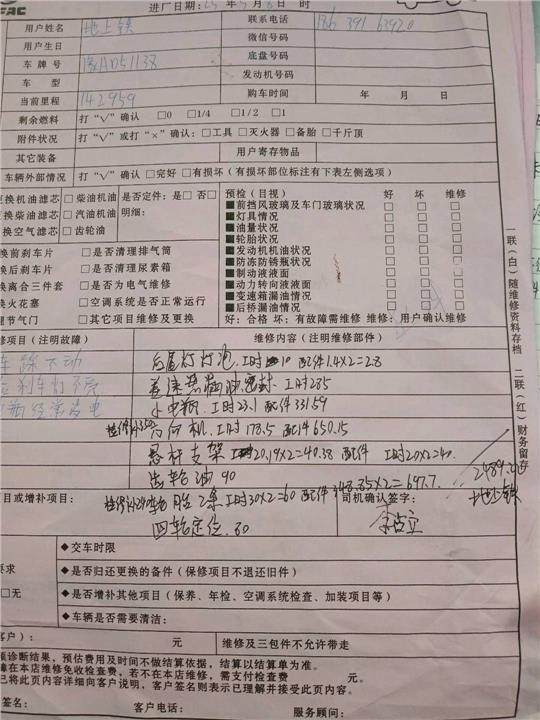 进厂日期: 23 年 5 月 8 日 时
用户姓名 地上铁 联系电话 186 391 63920
用户生日 微信号码
车 牌 号 豫AD51138 底盘号码
车 型 发动机号码
当前里程 142959 购车时间 年 月 日
剩余燃料 打“√”确认 □0 □1/4 □1/2 □1
附件状况 打“√”或打“×”确认: □工具 □灭火器 □备胎 □千斤顶
其它装备 用户寄存物品
车辆外部情况 打“√”确认 □完好 □有损坏(有损坏部位标注有下表左侧选项)
更换机油滤芯 □柴油机油 是否定件: 是□ 否□
更换柴油滤芯 □汽油机油 明细:
换空气滤芯 □齿轮油
预检(目视) 好 坏 维修
■前挡风玻璃及车门玻璃状况 □ □ □
■灯具情况 □ □ □
■油量状况 □ □ □
■轮胎状况 □ □ □
■发动机机油状况 □ □ □
■防冻防锈瓶状况 □ □ □
■制动液液面 □ □ □
■动力转向液液面 □ □ □
■变速箱漏油情况 □ □ □
■后桥漏油情况 □ □ □
好: 合格 坏: 有故障需维修 维修: 用户确认维修
换前刹车片 □是否清理排气筒
换后刹车片 □是否清理尿素箱
换离合三件套 □是否为电气维修
换火花塞 □空调系统是否正常运行
理节气门 □其它项目维修及更换
修项目(注明故障) 维修内容(注明维修部件)
车踩不动 后尾灯灯泡.工时10 配件1.4×2=2.8
刹车灯不亮 密封.工时285
电瓶经常亏电 小电瓶.工时23.1 配件331.59
方向机.工时178.5 配件650.15
悬杆支架 工时20.19×2=40.38 配件 工时20×2=40.
齿轮油 90
目或增补项目: 轮胎2条 工时30×2=60 配件348.85×2=697.7.
司机确认签字:
2489.
地上铁
四轮定位.80
◆交车时限
要求 ◆是否归还更换的备件(保修项目不退还旧件)
□无 ◆是否增补其他项目(保养、年检、空调系统检查、加装项目等)
◆车辆是否需要清洁:
客户): 元 维修及三包件不允许带走
预诊断结果,预估费用及时间不做结算依据,结算以结算单为准。
障在本店维修免收检查费,若不在本店维修,需支付检查费 元。
已将此页内容详细向客户说明,客户签名则表示已理解并接受此页内容。
签名: 客户电话: 服务顾问:
一联(白)随维修资料存档 二联(红)财务留存